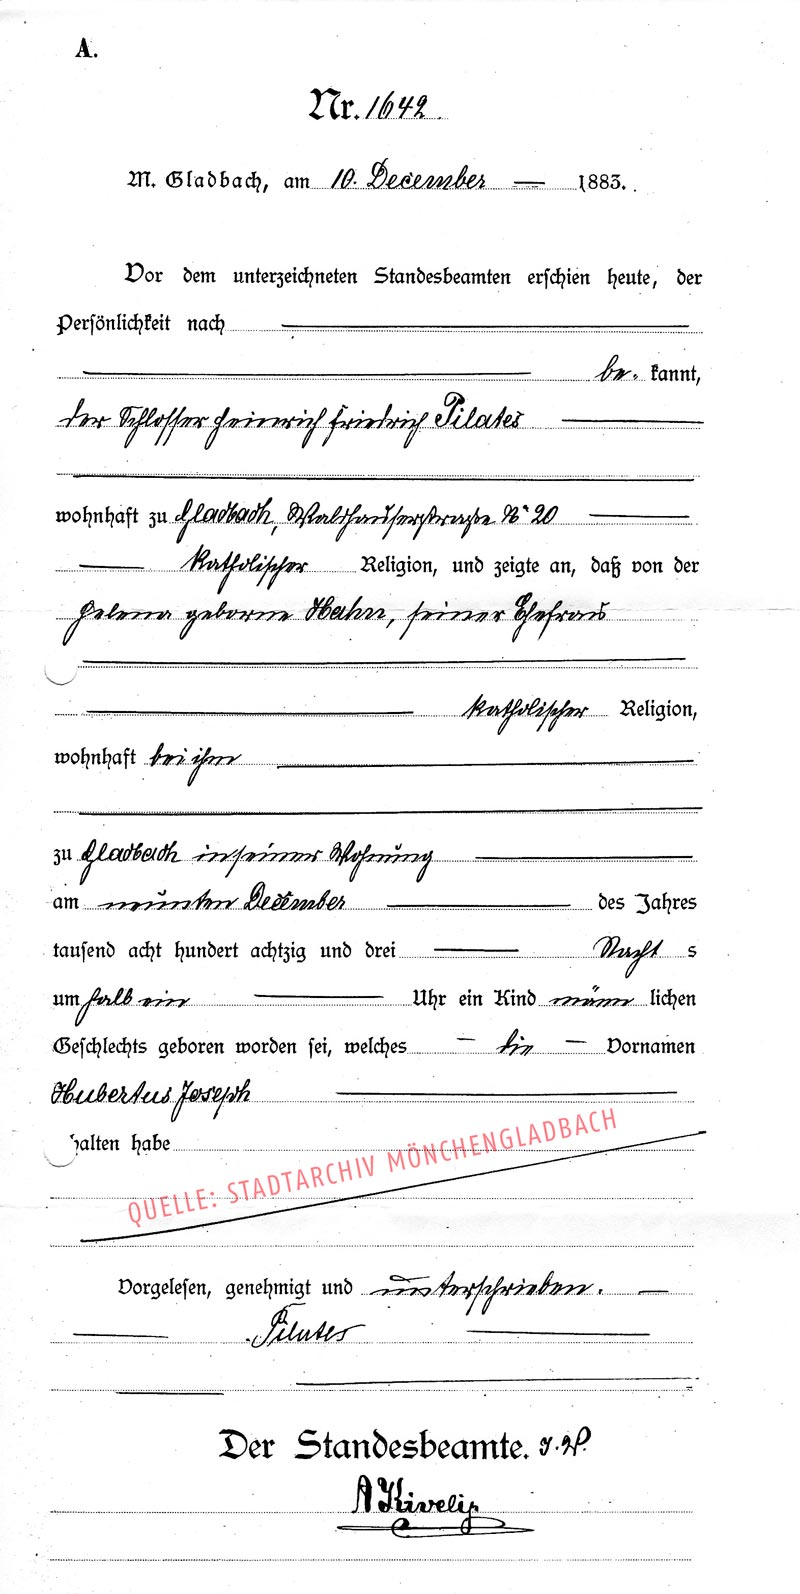 A.
Nr. 1642.
M. Gladbach, am 10. December 1883.
Vor dem unterzeichneten Standesbeamten erschien heute, der
Persönlichkeit nach
be- kannt,
der Schlosser Heinrich Friedrich Pilates
wohnhaft zu Gladbach, Waldhauserstraße No 20
katholischer Religion, und zeigte an, daß von der
Helena geborne Hahn, seiner Ehefrau
katholischer Religion,
wohnhaft bei ihm
zu Gladbach in seiner Wohnung
am neunten December des Jahres
tausend acht hundert achtzig und drei Nacht s
um halb ein Uhr ein Kind männ lichen
Geschlechts geboren worden sei, welches die Vornamen
Hubertus Joseph
halten habe
QUELLE: STADTARCHIV MÖNCHENGLADBACH
Vorgelesen, genehmigt und unterschrieben.
Pilates
Der Standesbeamte. I. V.